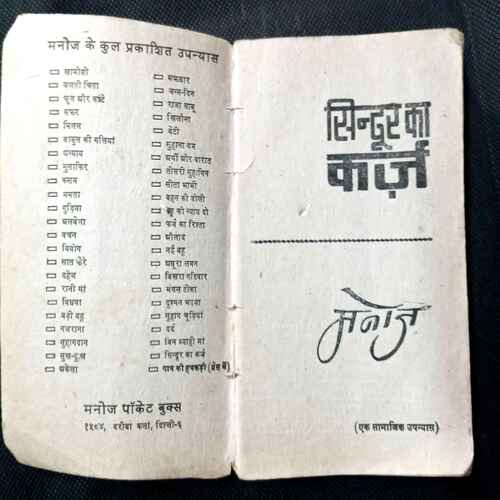 मनोज के कुल प्रकाशित उपन्यास
खामोशी
जलती चिता
फूल और कांटे
सफर
मिलन
बाबुल की गलियां
अन्याय
मुसाफिर
कसम
ममता
गुड़िया
अलबेला
वचन
वियोग
सात फेरे
दहेज
रानी मां
विधवा
बड़ी बहू
नजराना
सुहागदान
सुख-दुःख
अकेला
मझधार
जन्म-दिन
राजा बाबू
खिलौना
बेटी
सुहाना गम
अर्थी और बारात
तीसरी
सीता भाभी
बहन की डोली
बहू को न्याय दो
फर्ज का रिश्ता
औलाद
नई बहू
अधूरा
बिखरा परिवार
मंगल टीका
दुश्मन
सुहाग चूड़ियां
दर्द
बिन ब्याही मां
सिन्दूर का कर्ज
पाप की हथकड़ी (प्रेस में)
मनोज पॉकेट बुक्स
१५०४, दरीबा कलां, दिल्ली-६
सिन्दूर का
कर्ज़
मनोज
(एक सामाजिक उपन्यास)